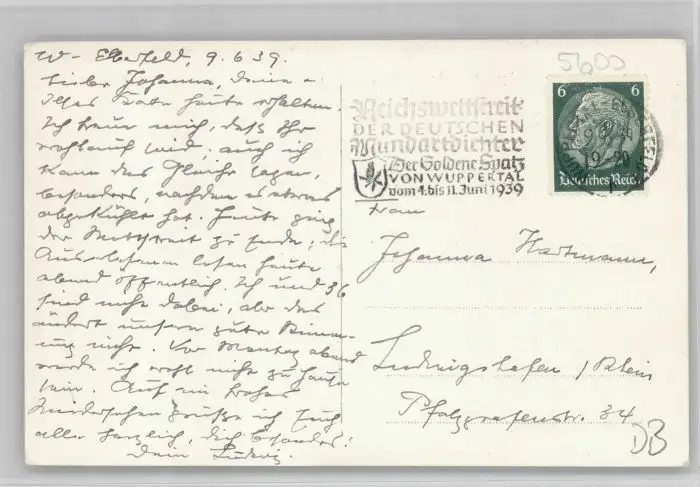 W - Elberfeld, 9.6.39.
Liebe Johanna, Deine u
Ilses Karte heute erhalten.
Ich freue mich, daß Ihr
wohlauf seid, auch ich
kann das Gleiche sagen,
besonders, nachdem es etwas
abgekühlt hat. Heute ging
der Wettstreit zu Ende; die
Auserlesenen lesen heute
abend öffentlich. Ich und 36
sind nicht dabei, aber das
ändert unsere gute Stimm-
ung nicht. Vor Montag abend
werde ich wohl nicht zu Hause
sein. Auf ein frohes
Wiedersehen grüße ich Euch
alle herzlich, Dich besonders!
Dein Ludwig.
5600
Reichswettstreit
DER DEUTSCHEN
Mundartdichter
Der Goldene Spatz
VON WUPPERTAL
vom 4. bis 11. Juni 1939
6 6
Deutsches Reich
WUPPERTAL-ELBERFELD
19-20
Frau
Johanna Hartmann,
Ludwigshafen / Rhein
Pfalzgrafenstr. 34
DB